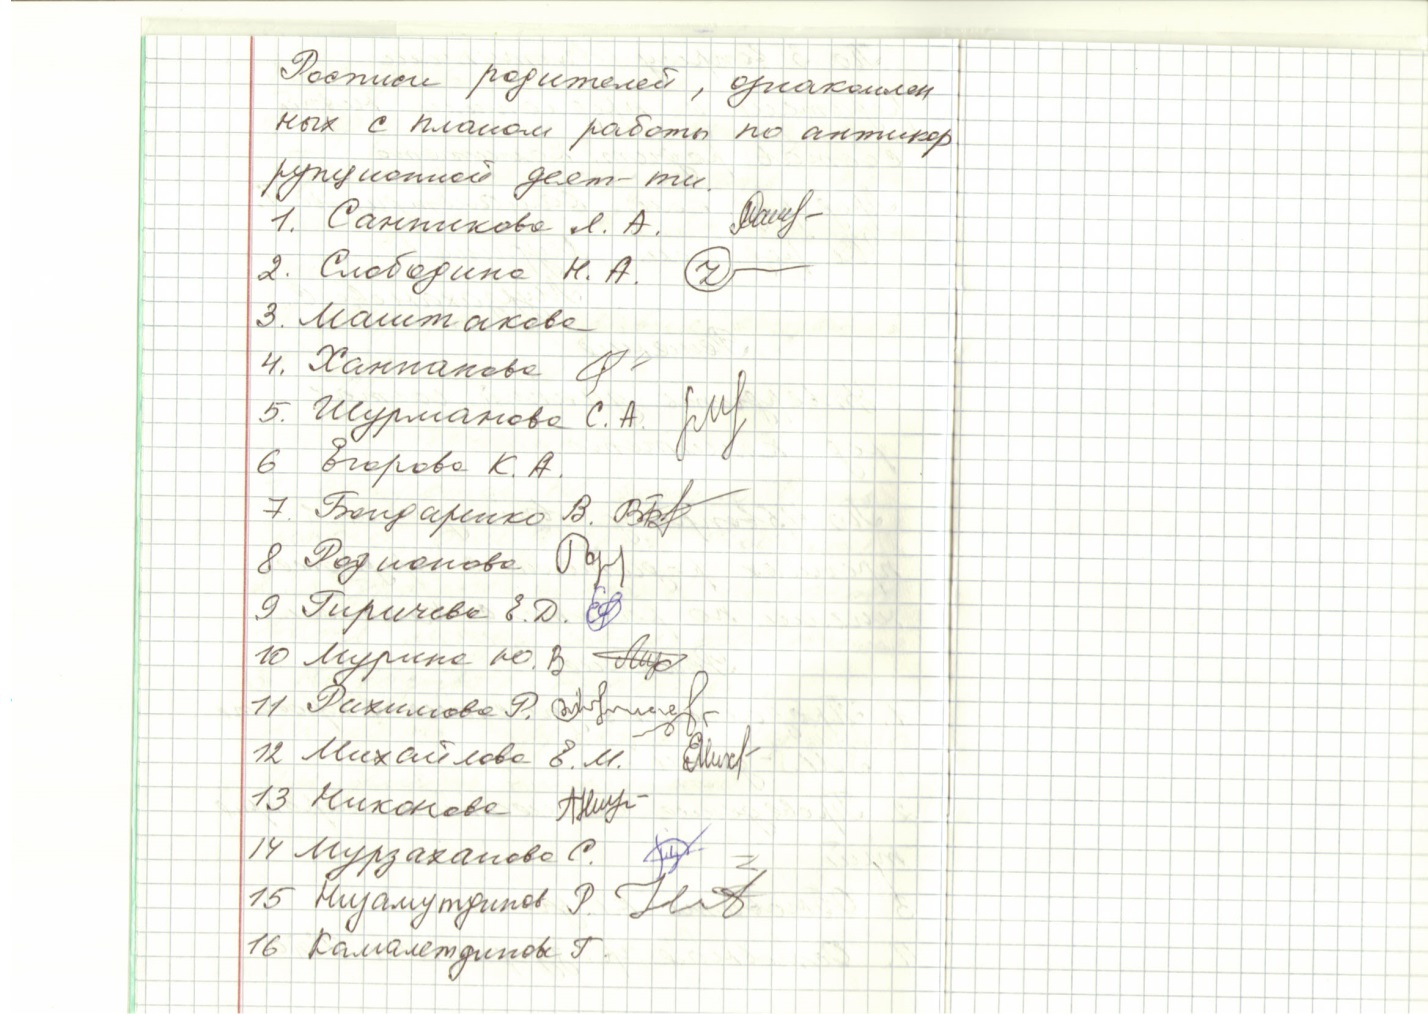 Росписи родителей, ознакомлен
ных с планом работы по антикор
рупционной деят-ти.
1. Санникова Л. А.
2. Слободина Н. А.
3. Маштакова
4. Ханнанова
5. Шурманова С. А.
6 Егорова К. А.
7. Бондаренко В.
8 Родионова
9 Гиричева Е. Д.
10 Мурина Ю. В
11 Рахимова Р.
12 Михайлова Е. М.
13 Никонова
14 Мурзаханова С.
15 Низамутдинов Р.
16 Камалетдинов Г.